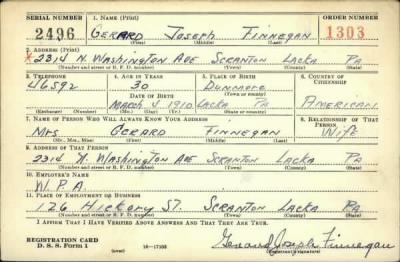 SERIAL NUMBER 1. NAME (Print) ORDER NUMBER
2496 GERARD JOSEPH FINNEGAN 1303
(First) (Middle) (Last)
2. ADDRESS (Print)
x2314 N. WASHINGTON AVE SCRANTON LACKA PA
(Number and street or R. F. D. number) (Town) (County) (State)
3. TELEPHONE 4. AGE IN YEARS 5. PLACE OF BIRTH 6. COUNTRY OF CITIZENSHIP
46592 30 DUNMORE
DATE OF BIRTH (Town or county)
MARCH 4 1910 LACKA PA AMERICAN
(Exchange) (Number) (Mo.) (Day) (Yr.) (State or country)
7. NAME OF PERSON WHO WILL ALWAYS KNOW YOUR ADDRESS 8. RELATIONSHIP OF THAT PERSON
MRS GERARD FINNEGAN WIFE
(Mr., Mrs., Miss) (First) (Middle) (Last)
9. ADDRESS OF THAT PERSON
2314 N. WASHINGTON AVE SCRANTON LACKA PA
(Number and street or R. F. D. number) (Town) (County) (State)
10. EMPLOYER'S NAME
W.P.A.
11. PLACE OF EMPLOYMENT OR BUSINESS
126 HICKORY ST. SCRANTON LACKA PA
(Number and street or R. F. D. number) (Town) (County) (State)
I AFFIRM THAT I HAVE VERIFIED ABOVE ANSWERS AND THAT THEY ARE TRUE.
REGISTRATION CARD Gerard Joseph Finnegan
D. S. S. Form 1 (over) 16—17105